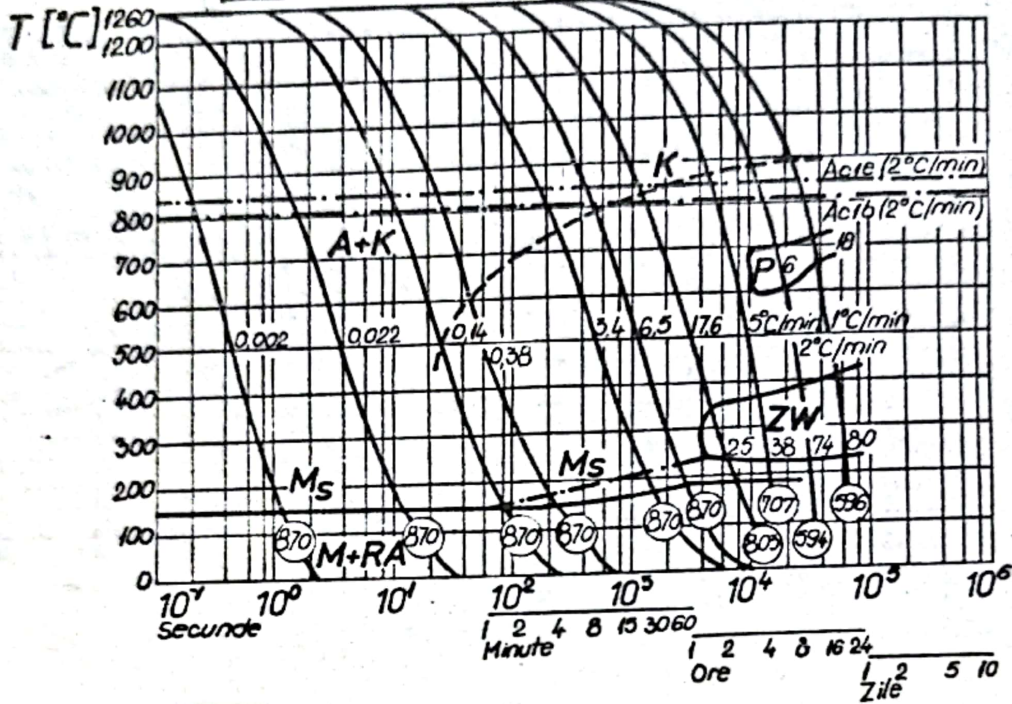 T [°C]
1260
1200
1100
1000
900
800
700
600
500
400
300
200
100
0
K
Ac1e (2°C/min)
Ac1b (2°C/min)
A+K
P 6 18
0,002 0,022 0,14 3,4 6,5 17,6 5°C/min 1°C/min
0,38 2°C/min
ZW
25 38 74 80
Ms Ms
870 M+RA 870 870 870 870 870 803 707 594 596
10⁰ 10¹ 10² 10³ 10⁴ 10⁵ 10⁶
Secunde
1 2 4 8 15 30 60
Minute
1 2 4 8 16 24
Ore
1 2 5 10
Zile